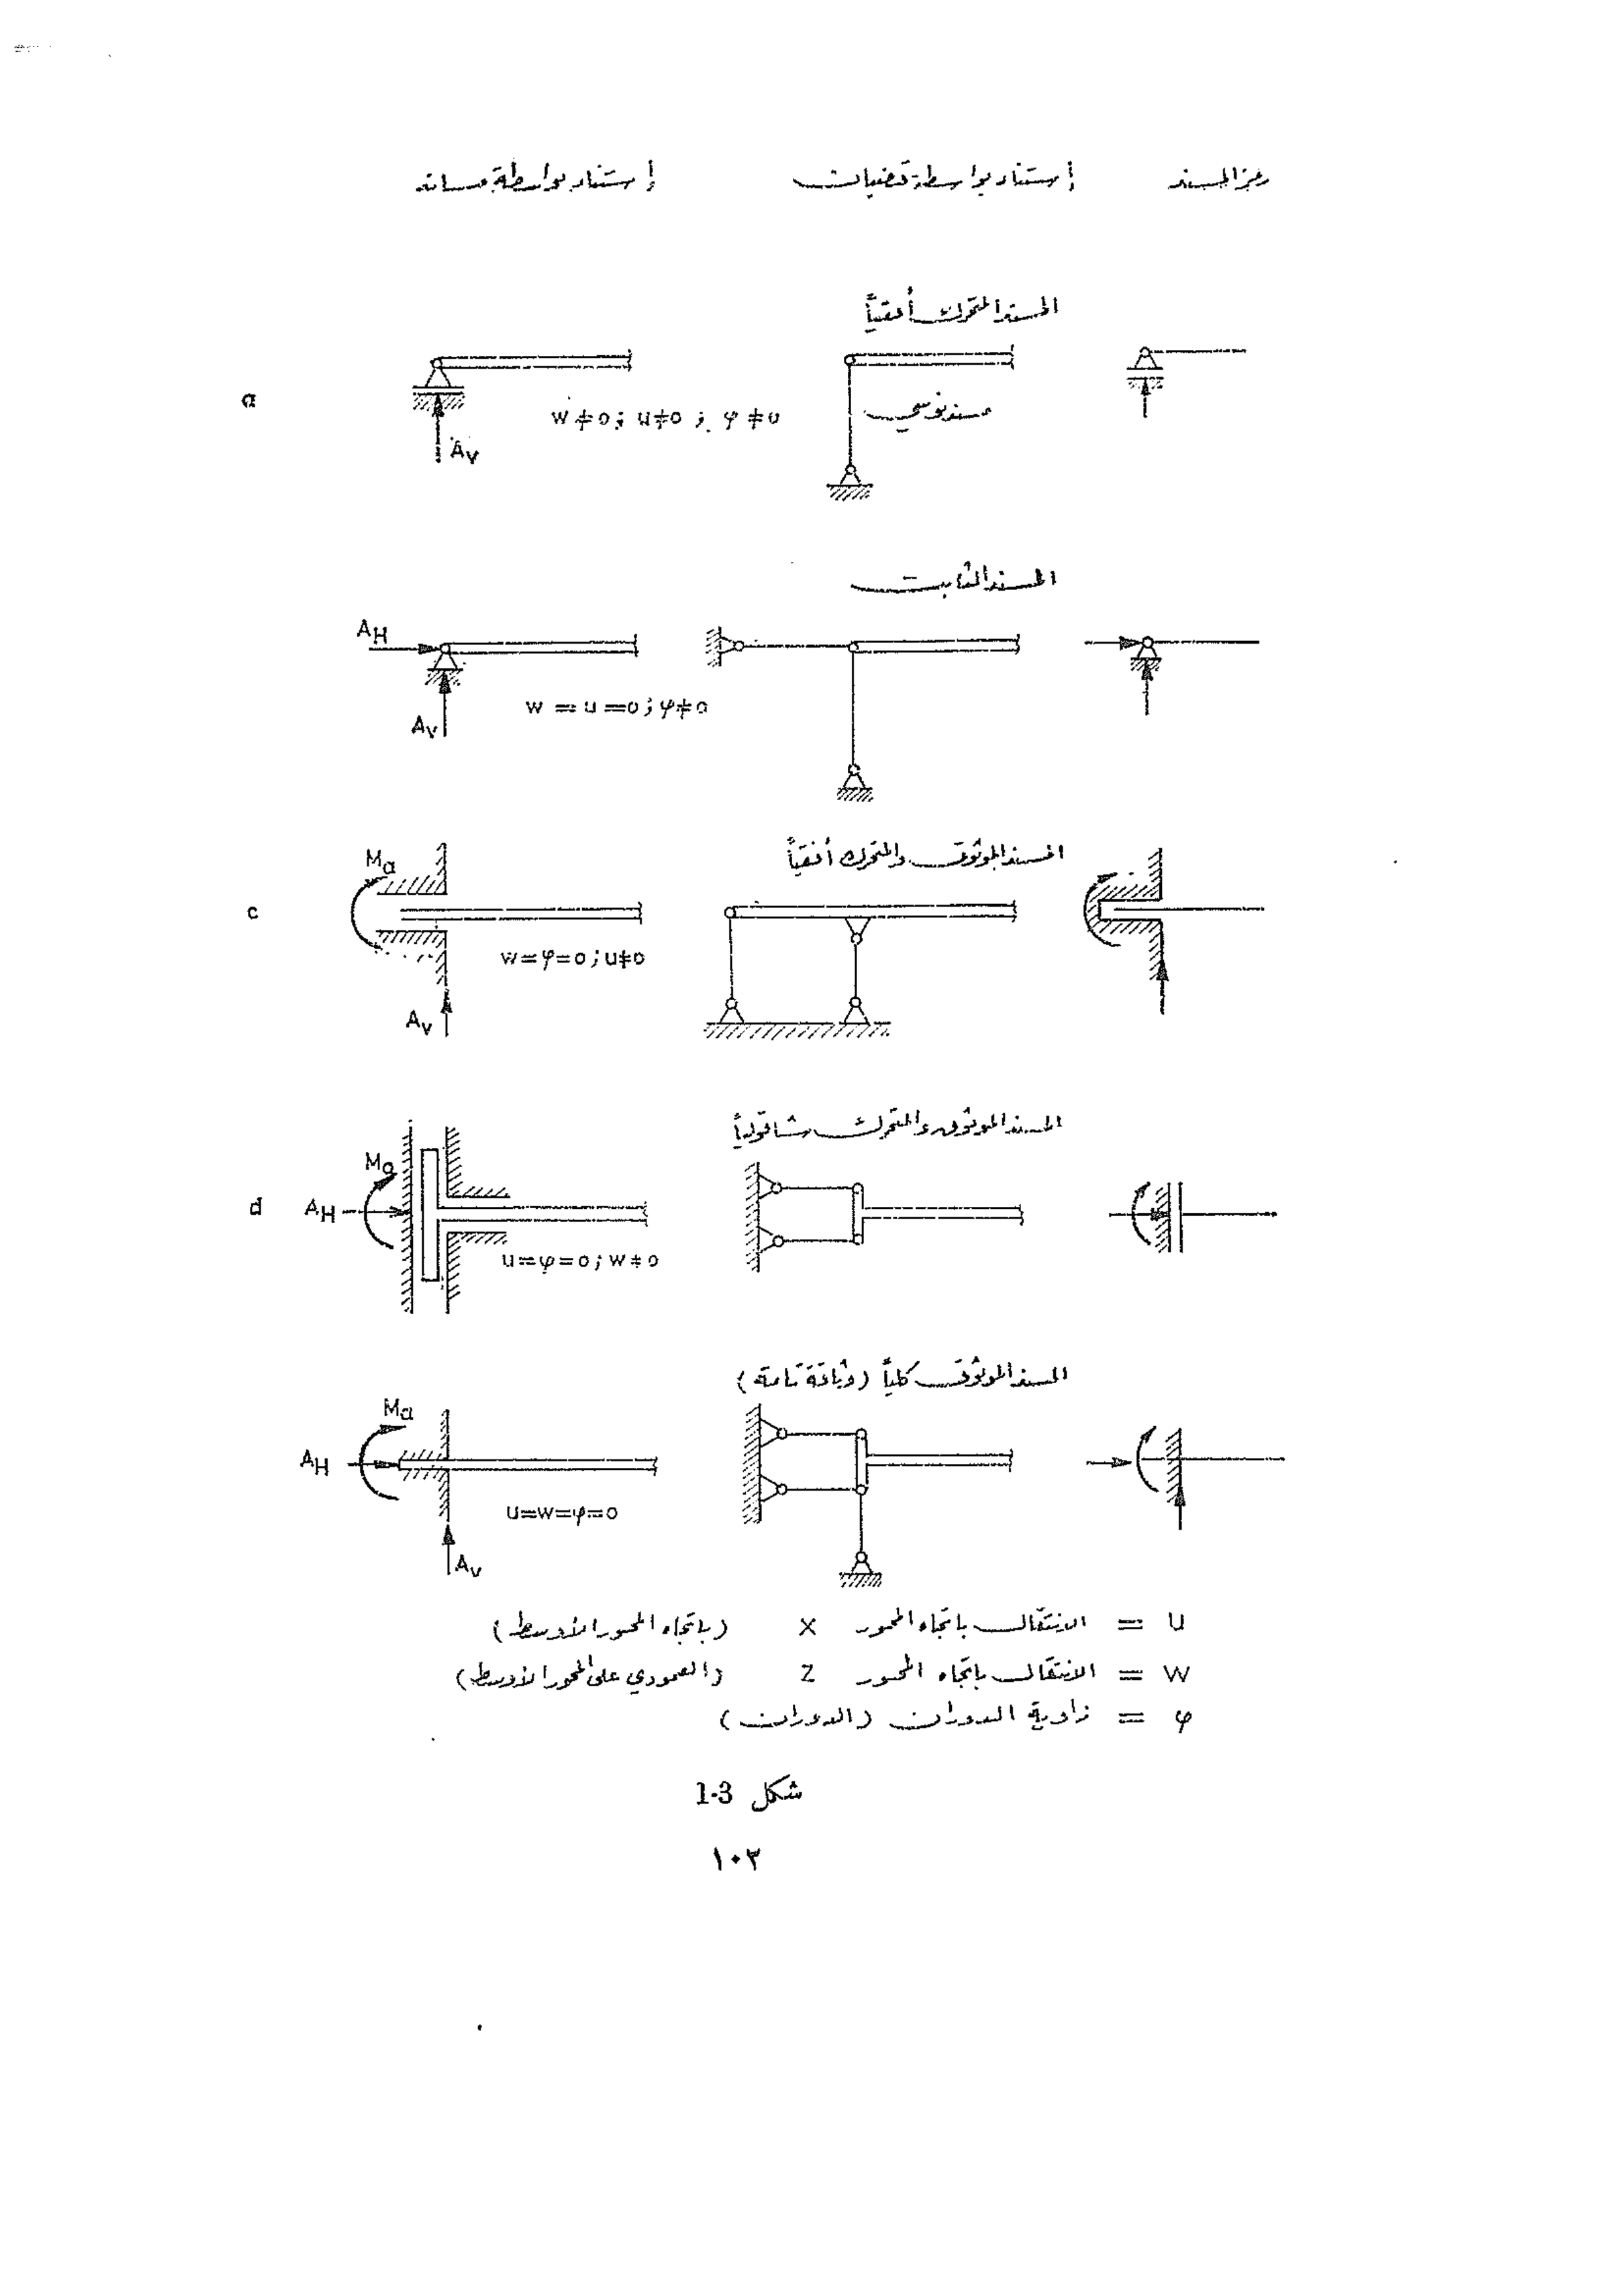 رمز المسند إستناد بواسطة قضبان إستناد بواسطة مساند
المسند المتحرك أفقياً
a
w ≠ o ; u ≠ o ; φ ≠ u
مسند نوسي
Av
المسند الثابت
AH
w = u = o ; φ ≠ o
Av
المسند الموثوق والمتحرك أفقياً
Ma
c
w = φ = o ; u ≠ o
Av
المسند الموثوق والمتحرك شاقولياً
Ma
d AH
u = φ = o ; w ≠ o
المسند الموثوق كلياً (وثاقة تامة)
Ma
AH
u = w = φ = o
Av
u = الانتقال باتجاه المحور x (باتجاه المحور الأوسط)
w = الانتقال باتجاه المحور z (العمودي على المحور الأوسط)
φ = زاوية الدوران (الدوران)
شكل 1-3
١٠٣